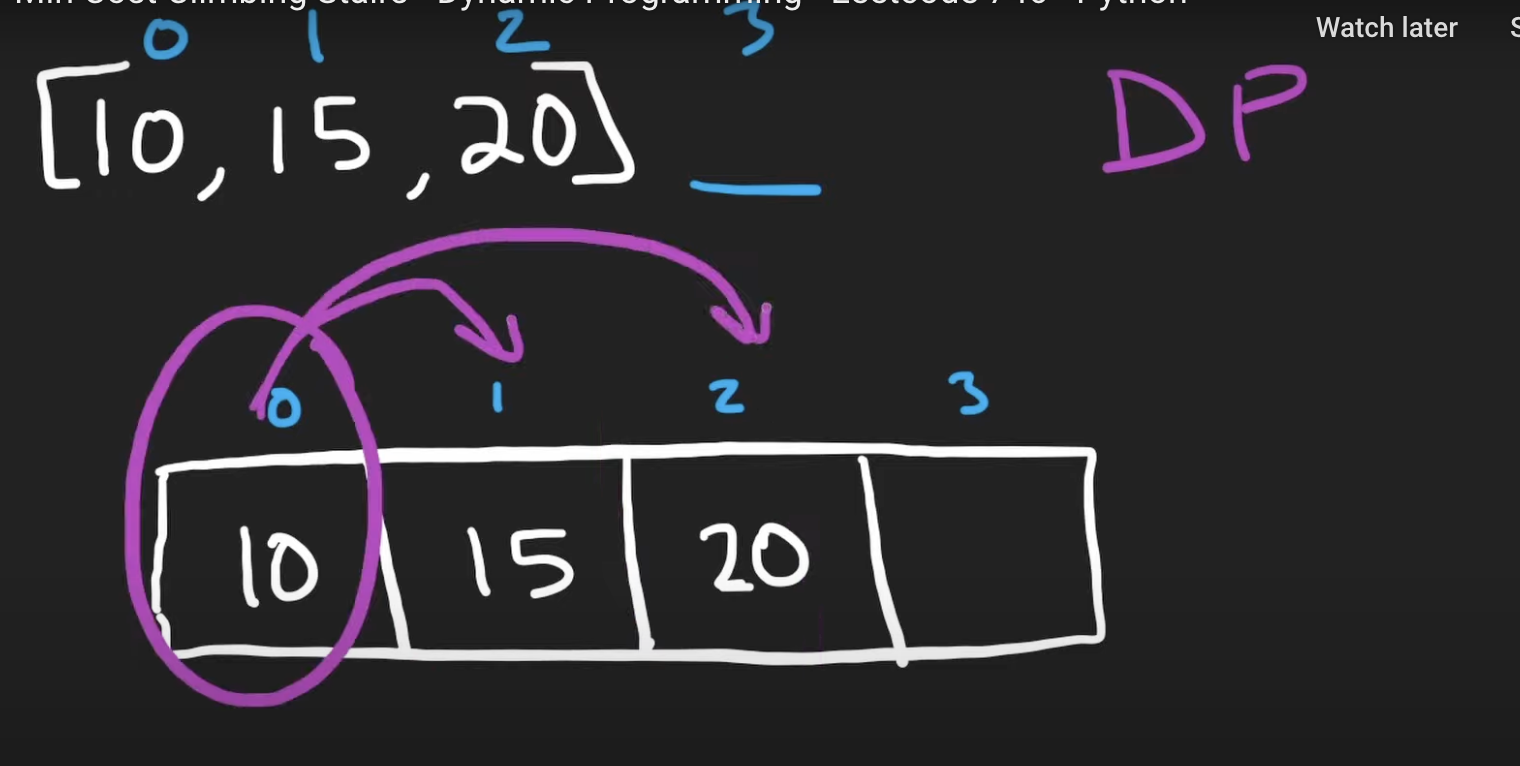 Min Cost Climbing Stairs - Dynamic Programming - Leetcode 746 - Python
Watch later
0 1 2 3
[10, 15, 20] _
DP
0 1 2 3
10 15 20